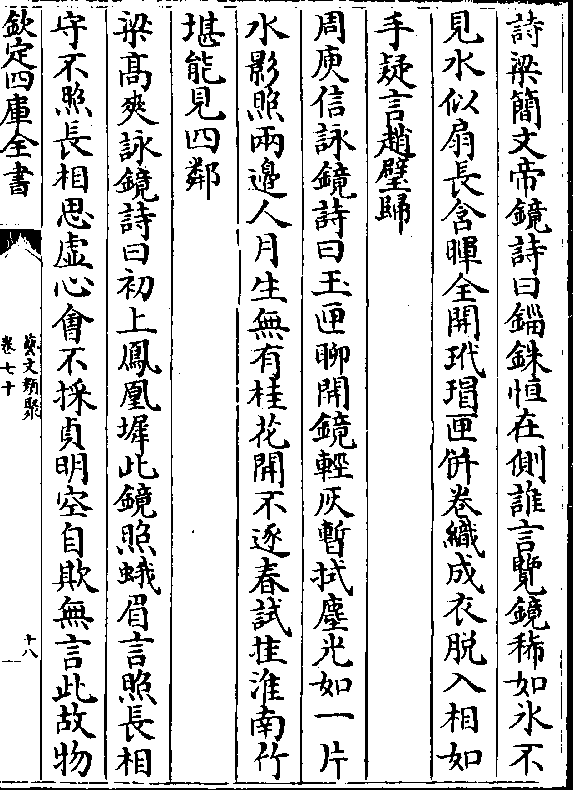 詩梁簡文帝鏡詩曰錙銖恒在側誰言覽鏡稀如氷不
見水似扇長含暉全開玳瑁匣併卷織成衣脱入相如
手疑言趙璧歸
周庾信詠鏡詩曰玉匣聊開鏡輕灰暫拭塵光如一片
水影照兩邉人月生無有桂花開不逐春試挂淮南竹
堪能見四鄰
梁髙爽詠鏡詩曰初上鳳凰墀此鏡照蛾眉言照長相
守不照長相思虚心會不採貞明空自欺無言此故物
欽定四庫全書
藝文類聚
卷七十
十八